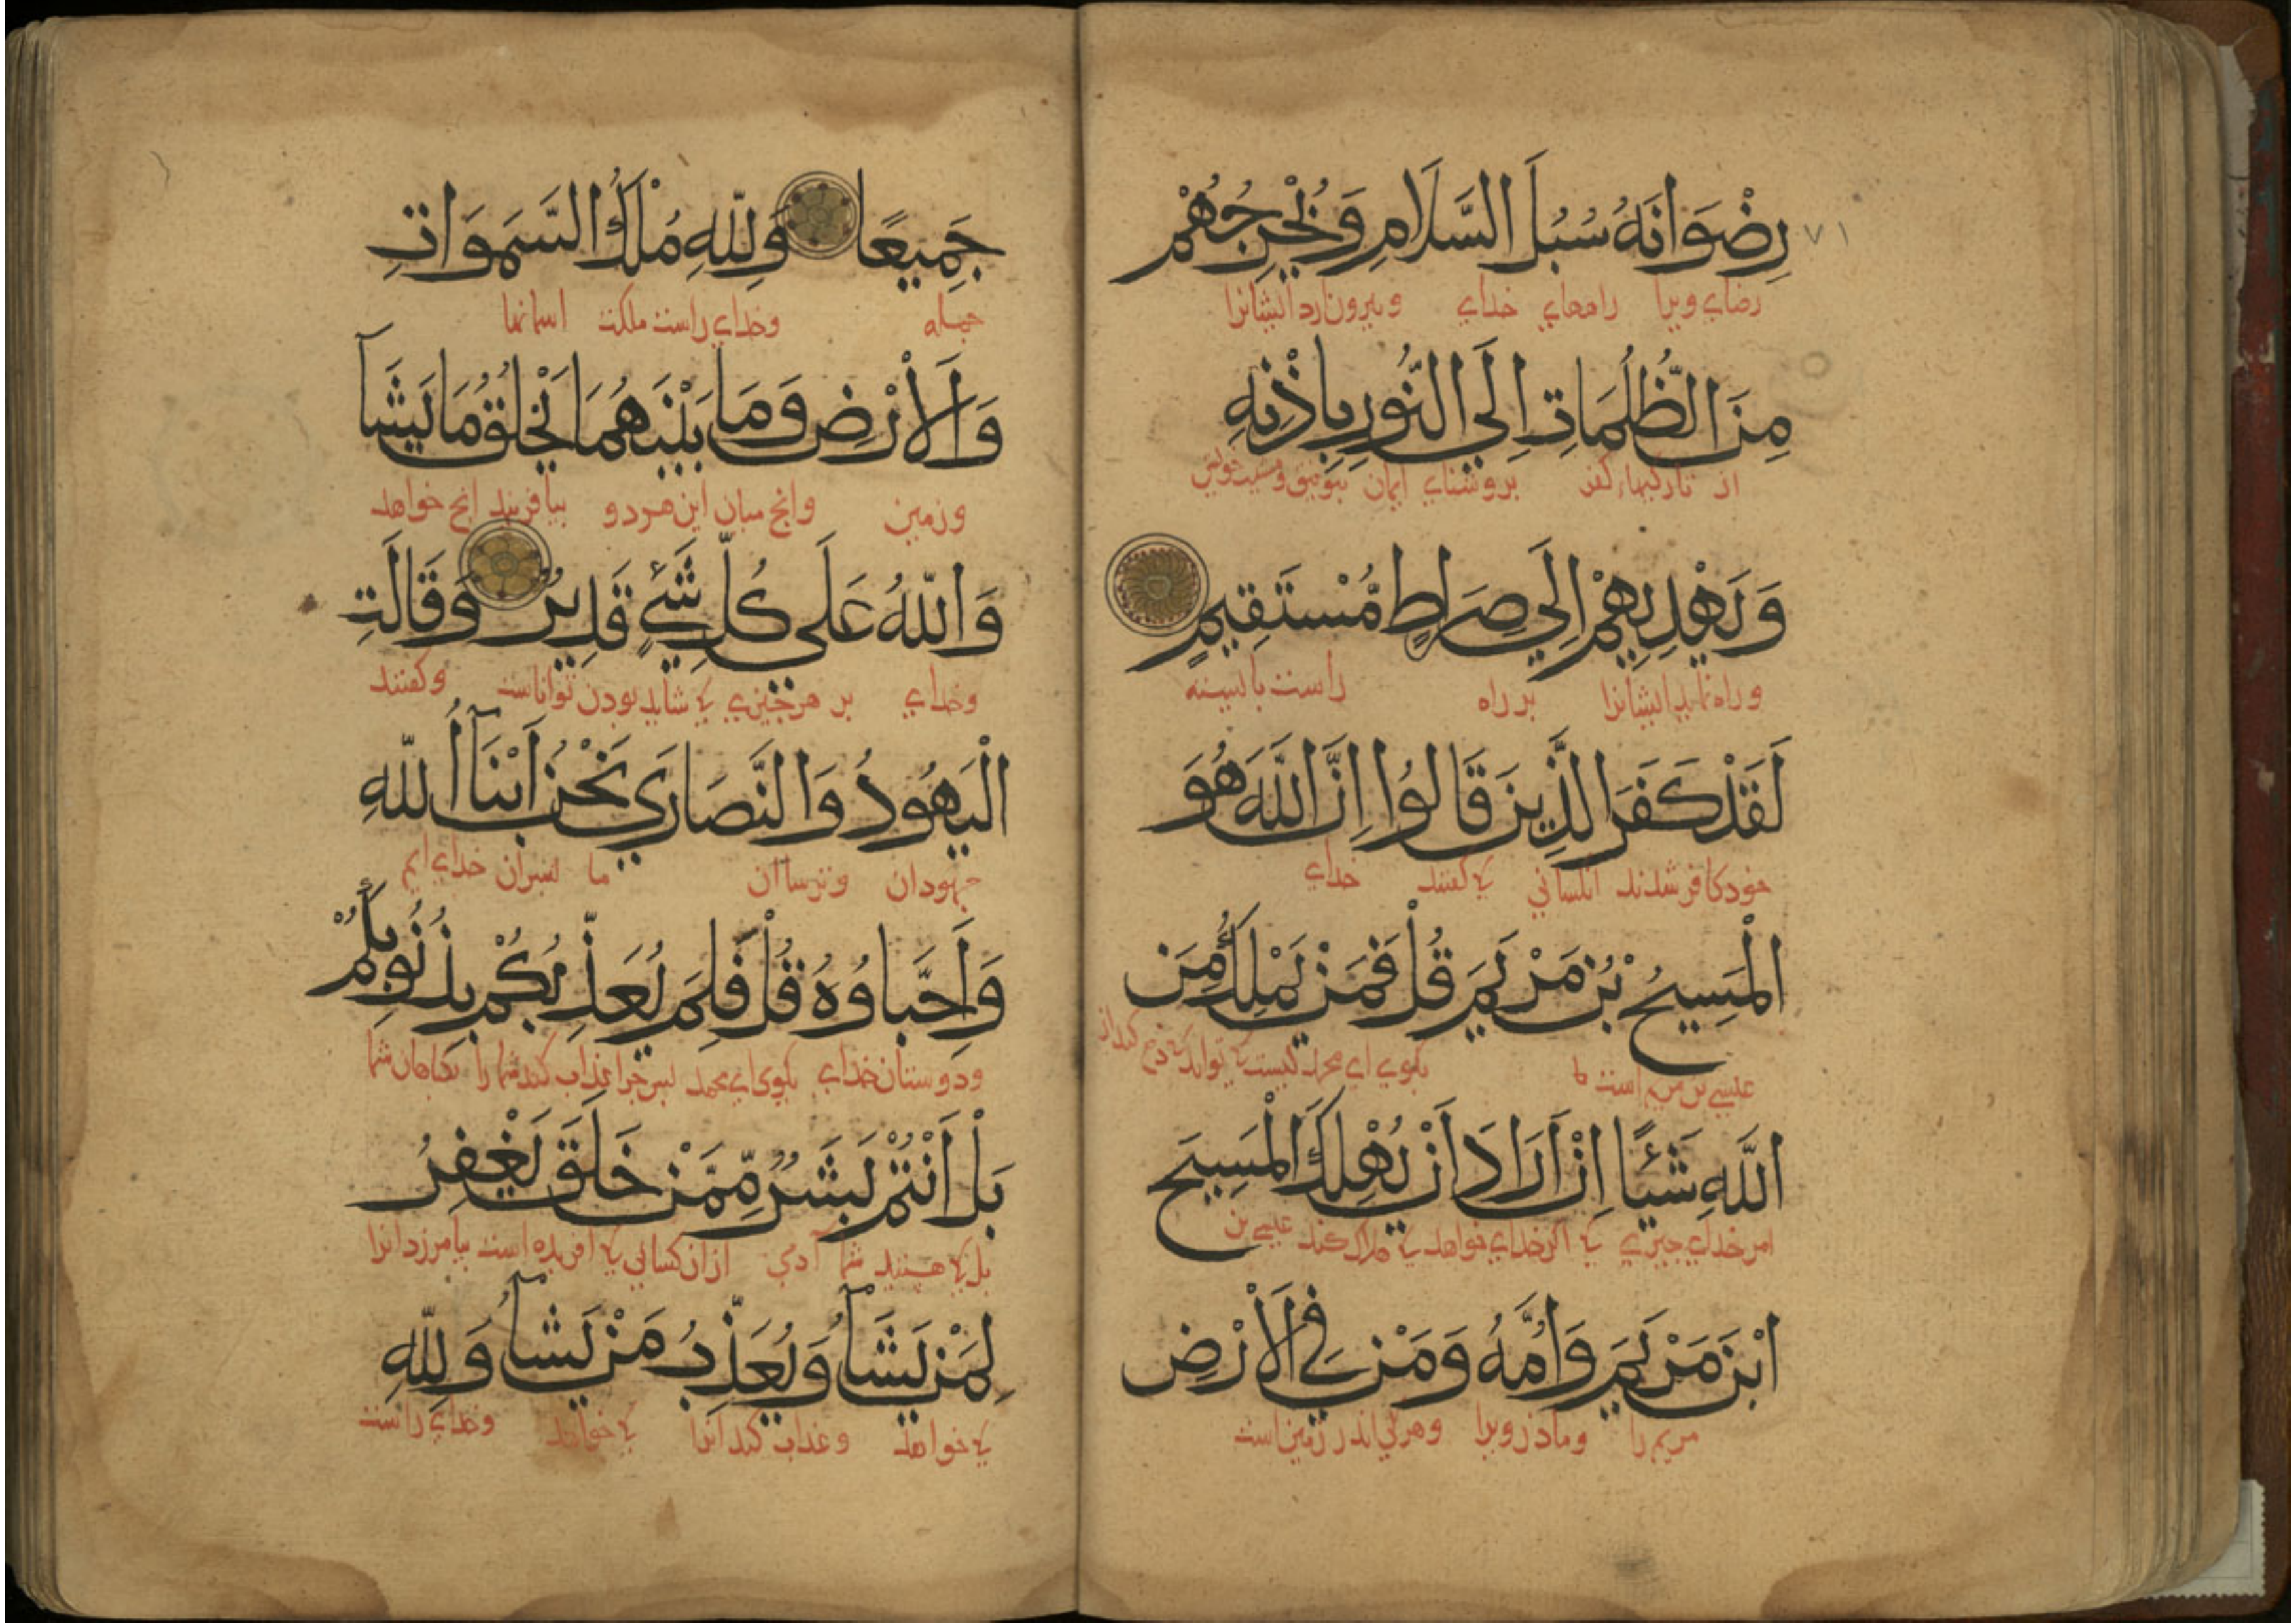 ٧١
رِضْوَانَهُ سُبُلَ السَّلَامِ وَيُخْرِجُهُمْ
رضاي ويرا راههاي خداي وبيرون آرد ايشانرا
مِنَ الظُّلُمَاتِ اِلَي النُّورِ بِاِذْنِهِ
از تاريكيهاء كفر بروشناي ايمان بتوفيق خويش
وَيَهْدِيهِمْ اِلَي صِرَاطٍ مُّسْتَقِيمٍ
وراه نمايد ايشانرا بر راه راست
لَقَدْ كَفَرَ الَّذِينَ قَالُوا اِنَّ اللَّهَ هُوَ
خود كافر شدند انكساني كه گفتند خداي
الْمَسِيحُ بْنُ مَرْيَمَ قُلْ فَمَنْ يَمْلِكُ مِنَ
عيسي بن مريم است بگوي اي محمد كيست كه تواند
اللَّهِ شَيْئًا اِنْ اَرَادَ اَنْ يُهْلِكَ الْمَسِيحَ
امر خداي چيزي كه اگر خداي خواهد كه هلاك كند عيسي بن
ابْنَ مَرْيَمَ وَاُمَّهُ وَمَنْ فِي الْاَرْضِ
مريم را ومادر ويرا وهركي اندر زمين است
جَمِيعًا وَلِلّهِ مُلْكُ السَّمَوَاتِ
جمله وخداي راست ملكت اسمانها
وَالْاَرْضِ وَمَا بَيْنَهُمَا يَخْلُقُ مَا يَشَآ
وزمين وانچ ميان اين هردو بيافريند انچ خواهد
وَاللّهُ عَلَي كُلِّ شَيْءٍ قَدِيرٌ وَقَالَتِ
وخداي بر هر چيزي كه شايد بودن تواناست وگفتند
الْيَهُودُ وَالنَّصَارَي نَحْنُ اَبْنَآأُ اللّهِ
جهودان وترساان ما پسران خداي ايم
وَاَحِبَّاوُهُ قُلْ فَلِمَ يُعَذِّبُكُمْ بِذُنُوبِكُمْ
ودوستان خداي بگوي اي محمد پس چرا عذاب كند شما را بگناهان شما
بَلْ اَنْتُمْ بَشَرٌ مِّمَّنْ خَلَقَ يَغْفِرُ
بل كه هستيد شما آدمي ازان كساني كه افريده است بيامرزد انرا
لِمَنْ يَشَآُ وَيُعَذِّبُ مَنْ يَشَآُ وَلِلّهِ
كه خواهد وعذاب كند انرا كه خواهد وخداي راست